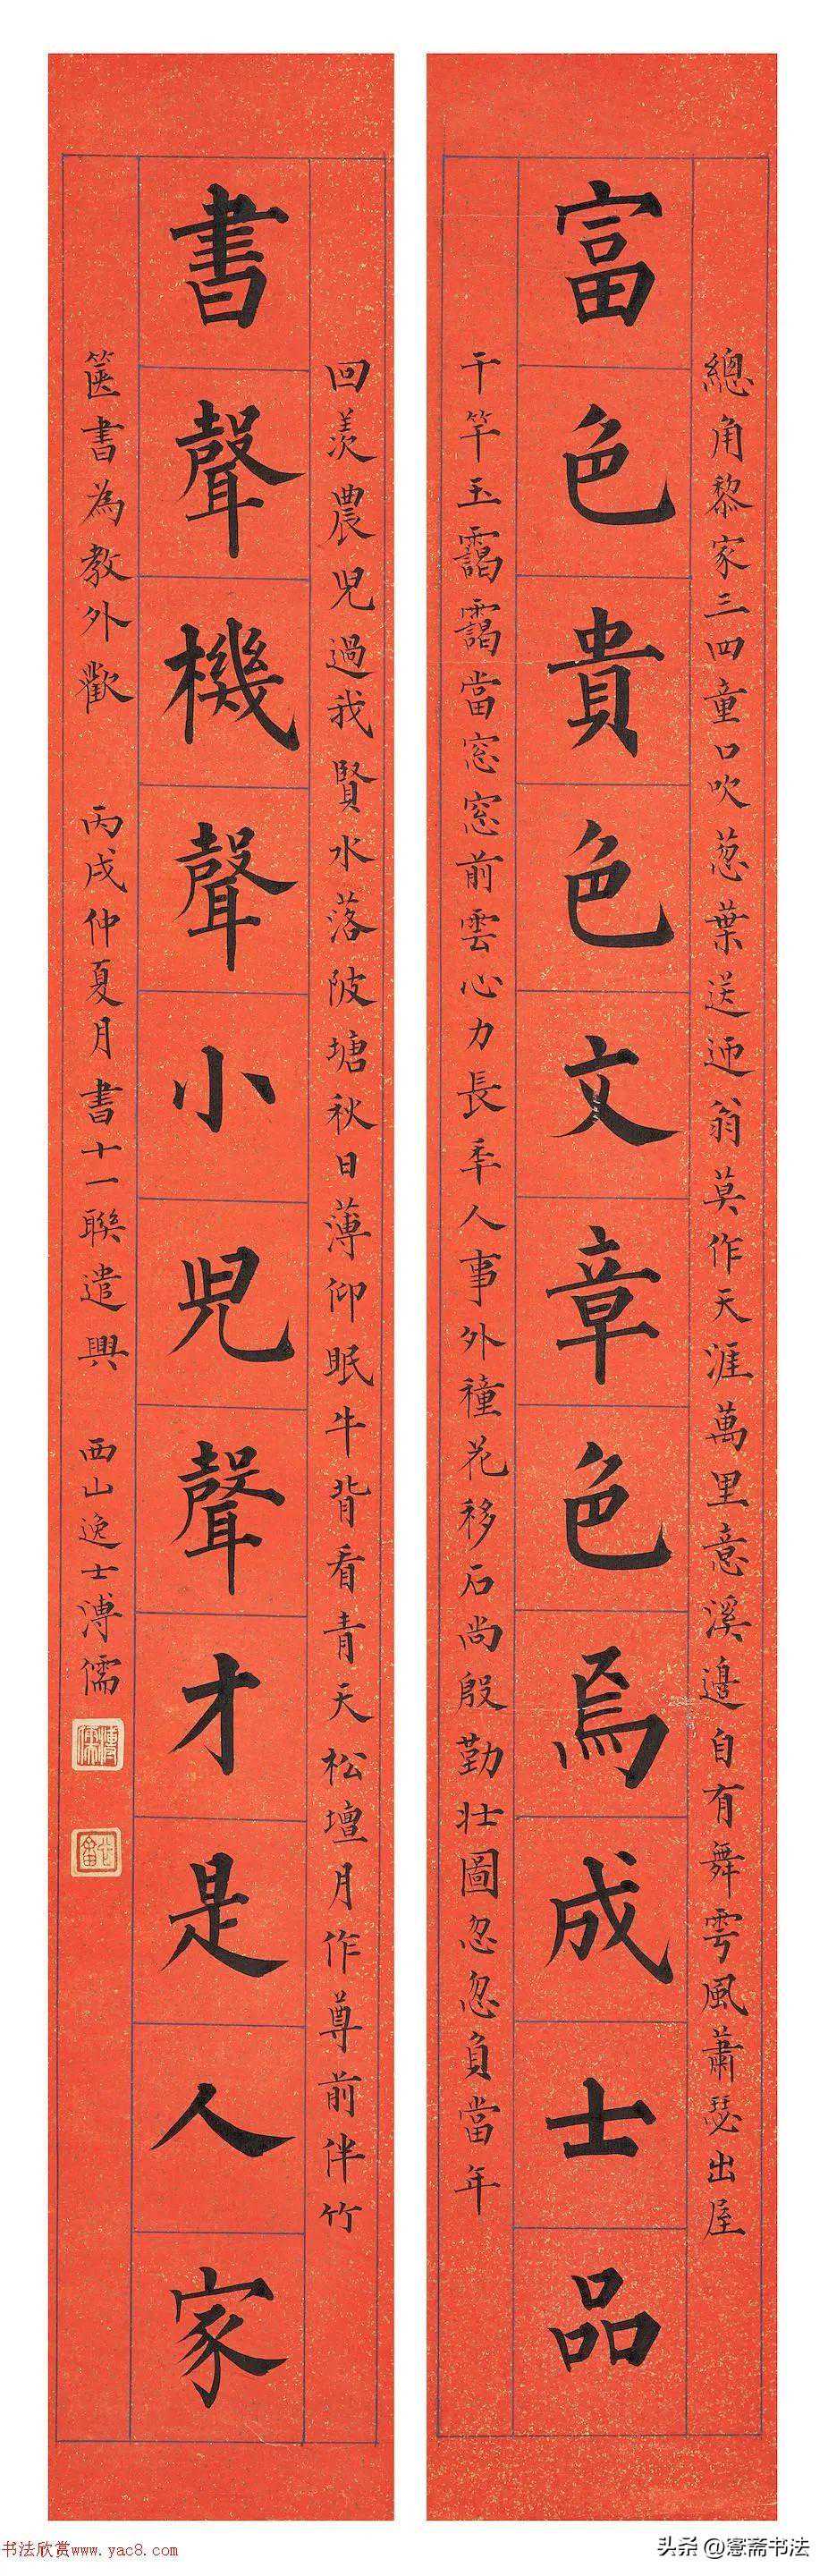 富色貴色文章色焉成士品
總角黎家三四童口吹葱葉送迎翁莫作天涯萬里意溪邊自有舞雩風蕭瑟出屋
千竿玉靄靄當窓窓前雲心力長年人事外種花移石尚殷勤壯圖忽忽負當年
書聲機聲小兒聲才是人家
回羨農兒過我賢水落陂塘秋日薄仰眠牛背看青天松壇月作尊前伴竹
篋書為教外歡 丙戌仲夏月書十一聯遣興 西山逸士溥儒
书法欣赏www.yac8.com
头条@憲斋书法